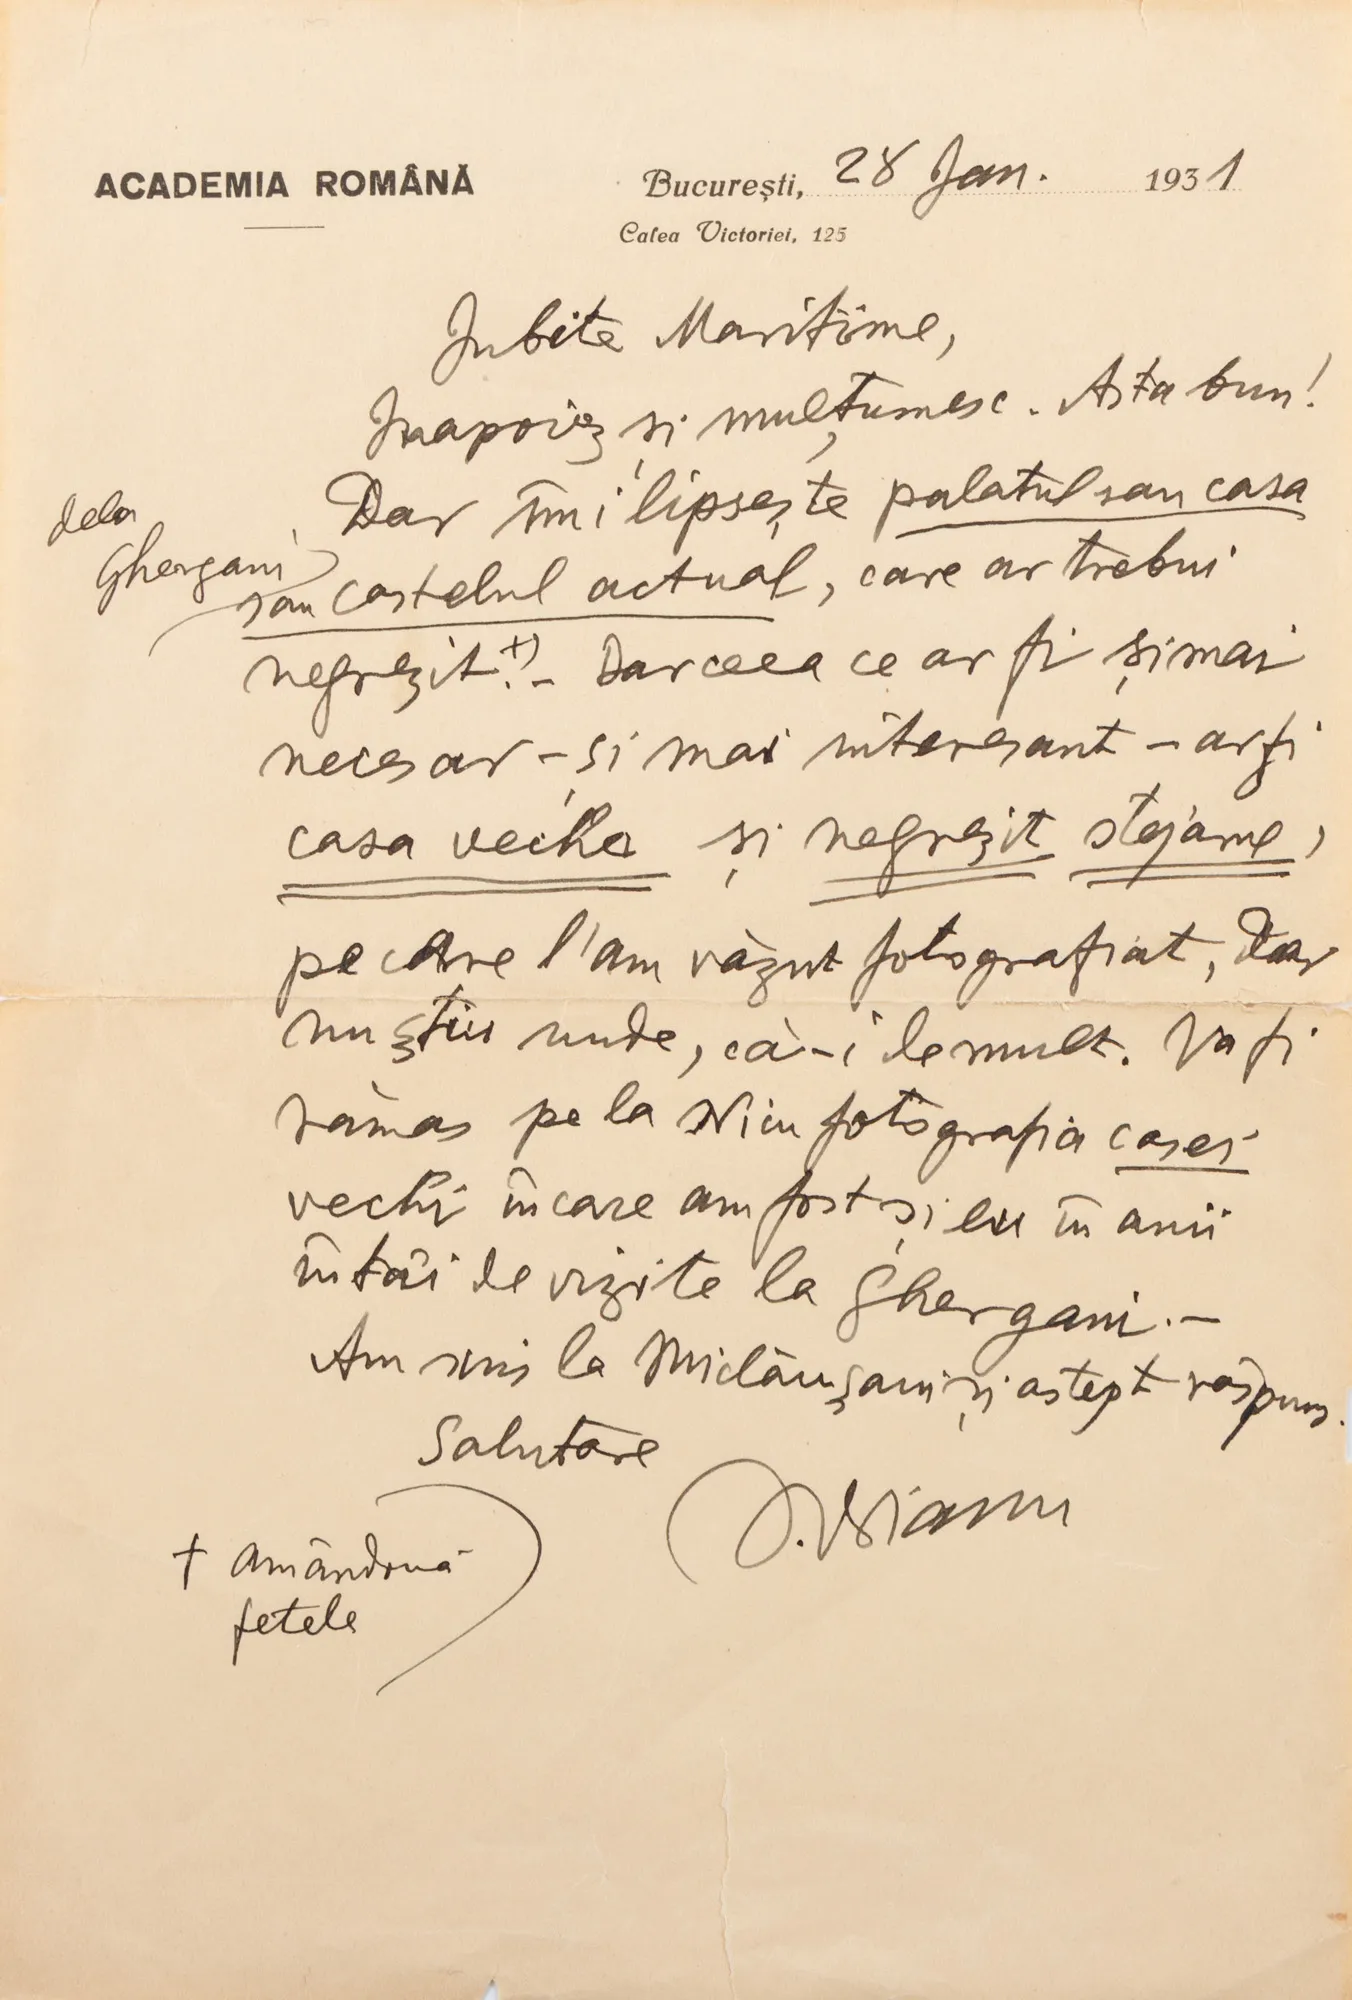 ACADEMIA ROMÂNĂ
București, 28 Jan. 1931
Calea Victoriei, 125
Iubite Maritime,
Inapoiez și mulțumesc. Asta bun!
Dar îmi lipsește palatul sau casa
dela
Ghergani
sau castelul actual, care ar trebui
negreșit.+) – Dar ceea ce ar fi și mai
necesar – și mai interesant – ar fi
casa veche și negreșit stejarul,
pe care l'am văzut fotografiat, dar
nu știu unde, că-i demult. Va fi
rămas pe la Nicu fotografia casei
vechi în care am fost și eu în anii
întâi de vizite la Ghergani. –
Am scris la și aștept răspuns.
Salutare
I. Bianu
+ amândouă
fetele